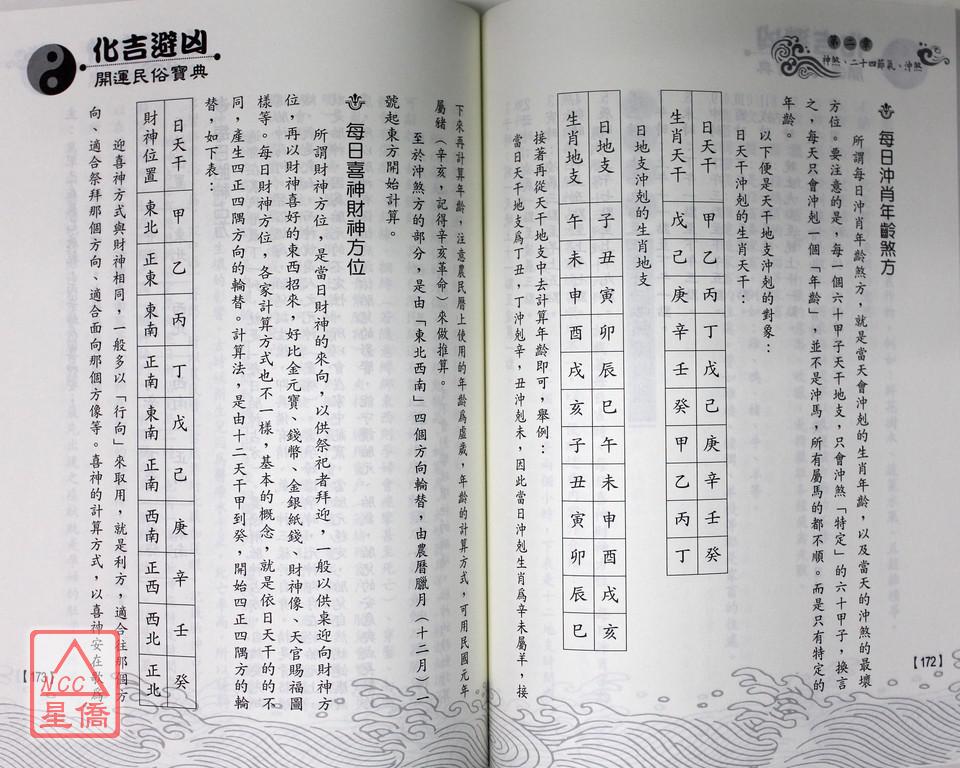 第二章
神煞、二十四節氣、沖煞
每日沖肖年齡煞方
所謂每日沖肖年齡煞方，就是當天會沖剋的生肖年齡，以及當天的沖煞的最壞
方位。要注意的是，每一個六十甲子天干地支，只會沖煞「特定」的六十甲子，換言
之，每天只會沖剋一個「年齡」，並不是沖馬，所有屬馬的都不順。而是只有特定的
年齡。
以下便是天干地支沖剋的對象：
日天干沖剋的生肖天干：
日天干 甲 乙 丙 丁 戊 己 庚 辛 壬 癸
生肖天干 戊 己 庚 辛 壬 癸 甲 乙 丙 丁
日地支沖剋的生肖地支
日地支 子 丑 寅 卯 辰 巳 午 未 申 酉 戌 亥
生肖地支 午 未 申 酉 戌 亥 子 丑 寅 卯 辰 巳
接著再從天干地支中去計算年齡即可，舉例：
當日天干地支為丁丑，丁沖剋辛，丑沖剋未，因此當日沖剋生肖為辛未屬羊，接
【172】
化吉避凶
開運民俗寶典
下來再計算年齡，注意農民曆上使用的年齡為虛歲，年齡的計算方式，可用民國元年
屬豬（辛亥，記得辛亥革命）來做推算。
至於沖煞方的部分，是由「東北西南」四個方向輪替，由農曆臘月（十二月）一
號起東方開始計算。
每日喜神財神方位
所謂財神方位，是當日財神的來向，以供祭祀者拜迎，一般以供桌迎向財神方
位，再以財神喜好的東西招來，好比金元寶、錢幣、金銀紙錢、財神像、天官賜福圖
樣等。每日財神方位，各家計算方式也不一樣，基本的概念，就是依日天干的的不
同，產生四正四隅方向的輪替。計算法，是由十二天干甲到癸，開始四正四隅方的輪
替，如下表：
日天干 甲 乙 丙 丁 戊 己 庚 辛 壬 癸
財神位置 東北 正東 東南 正南 東南 正南 西南 正西 西北 正北
迎喜神方式與財神相同，一般多以「行向」來取用，就是利方，適合往那個方
向、適合祭拜那個方向、適合面向那個方像等。喜神的計算方式，以喜神安在歌為
【173】
NCC
星僑